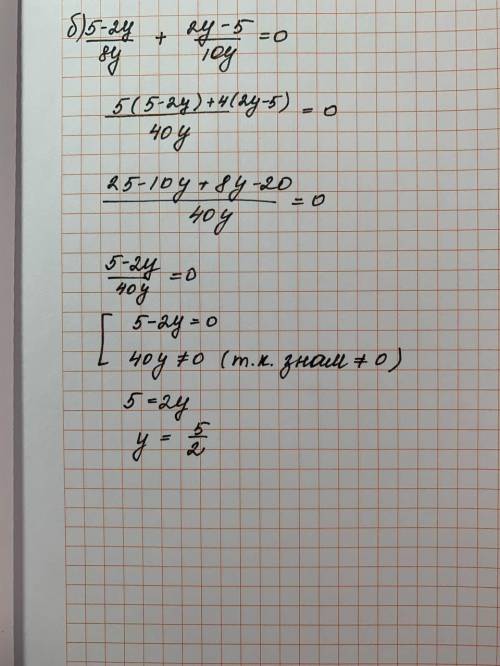 б) (5-2y)/(8y) + (2y-5)/(10y) = 0
(5(5-2y)+4(2y-5))/(40y) = 0
(25-10y+8y-20)/(40y) = 0
(5-2y)/(40y) = 0
[ 5-2y=0
40y≠0 (т.к. знам ≠ 0)
5 = 2y
y = 5/2